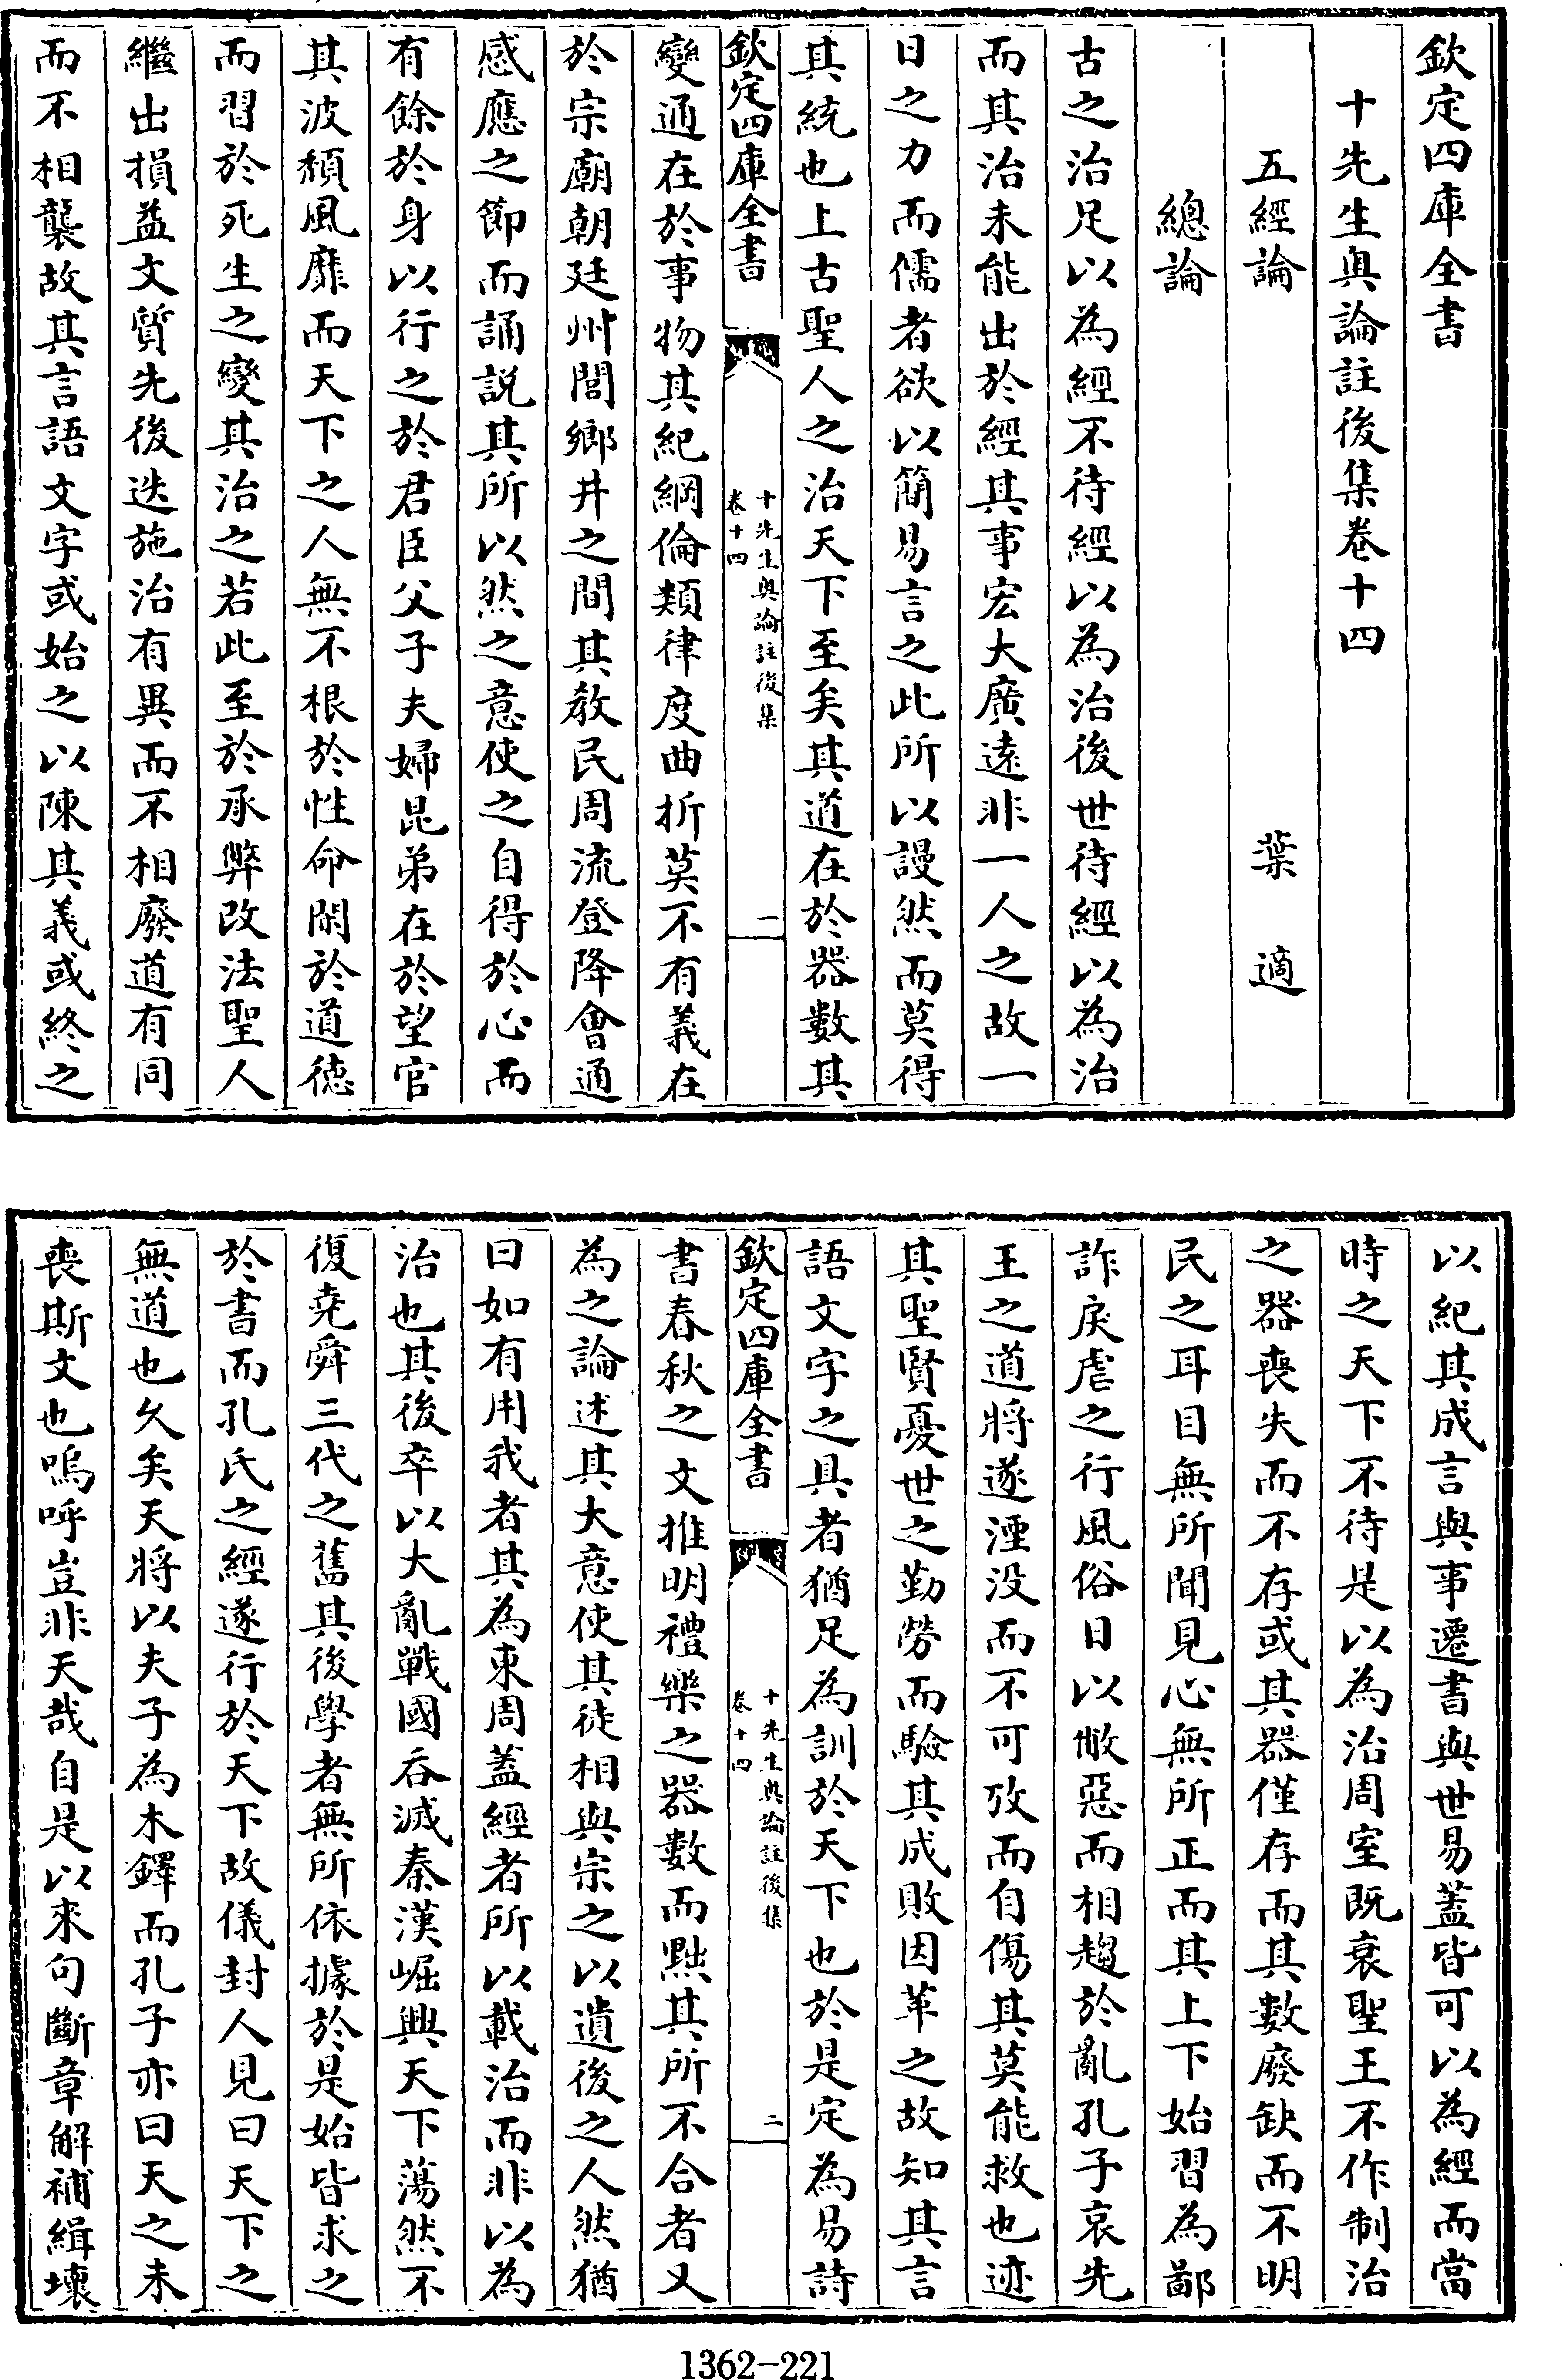 欽定四庫全書
十先生奥論註後集卷十四
五經論 葉適
總論
古之治足以為經不待經以為治後世待經以為治
而其治未能出於經其事宏大廣逺非一人之故一
日之力而儒者欲以簡易言之此所以謾然而莫得
其統也上古聖人之治天下至矣其道在於器數其
欽定四庫全書
十先生奥論註後集
卷十四
一
變通在於事物其紀綱倫類律度曲折莫不有義在
於宗廟朝廷州閭鄉井之間其教民周流登降會通
感應之節而誦説其所以然之意使之自得於心而
有餘於身以行之於君臣父子夫婦昆弟在於望官
其波頽風靡而天下之人無不根於性命閑於道徳
而習於死生之變其治之若此至於承弊改法聖人
繼出損益文質先後迭施治有異而不相廢道有同
而不相襲故其言語文字或始之以陳其義或終之
以紀其成言與事遷書與世易蓋皆可以為經而當
時之天下不待是以為治周室既衰聖王不作制治
之器喪失而不存或其器僅存而其數廢缺而不明
民之耳目無所聞見心無所正而其上下始習為鄙
詐戾虐之行風俗日以敝惡而相趨於亂孔子哀先
王之道將遂湮没而不可攷而自傷其莫能救也迹
其聖賢憂世之勤勞而驗其成敗因革之故知其言
語文字之具者猶足為訓於天下也於是定為易詩
欽定四庫全書
十先生奥論註後集
卷十四
二
書春秋之文推明禮樂之器數而黜其所不合者又
為之論述其大意使其徒相與宗之以遺後之人然猶
曰如有用我者其為東周蓋經者所以載治而非以為
治也其後卒以大亂戰國吞滅秦漢崛興天下蕩然不
復堯舜三代之舊其後學者無所依據於是始皆求之
於書而孔氏之經遂行於天下故儀封人見曰天下之
無道也久矣天將以夫子為木鐸而孔子亦曰天之未
喪斯文也嗚呼豈非天哉自是以來句斷章解補緝壞
1362-221